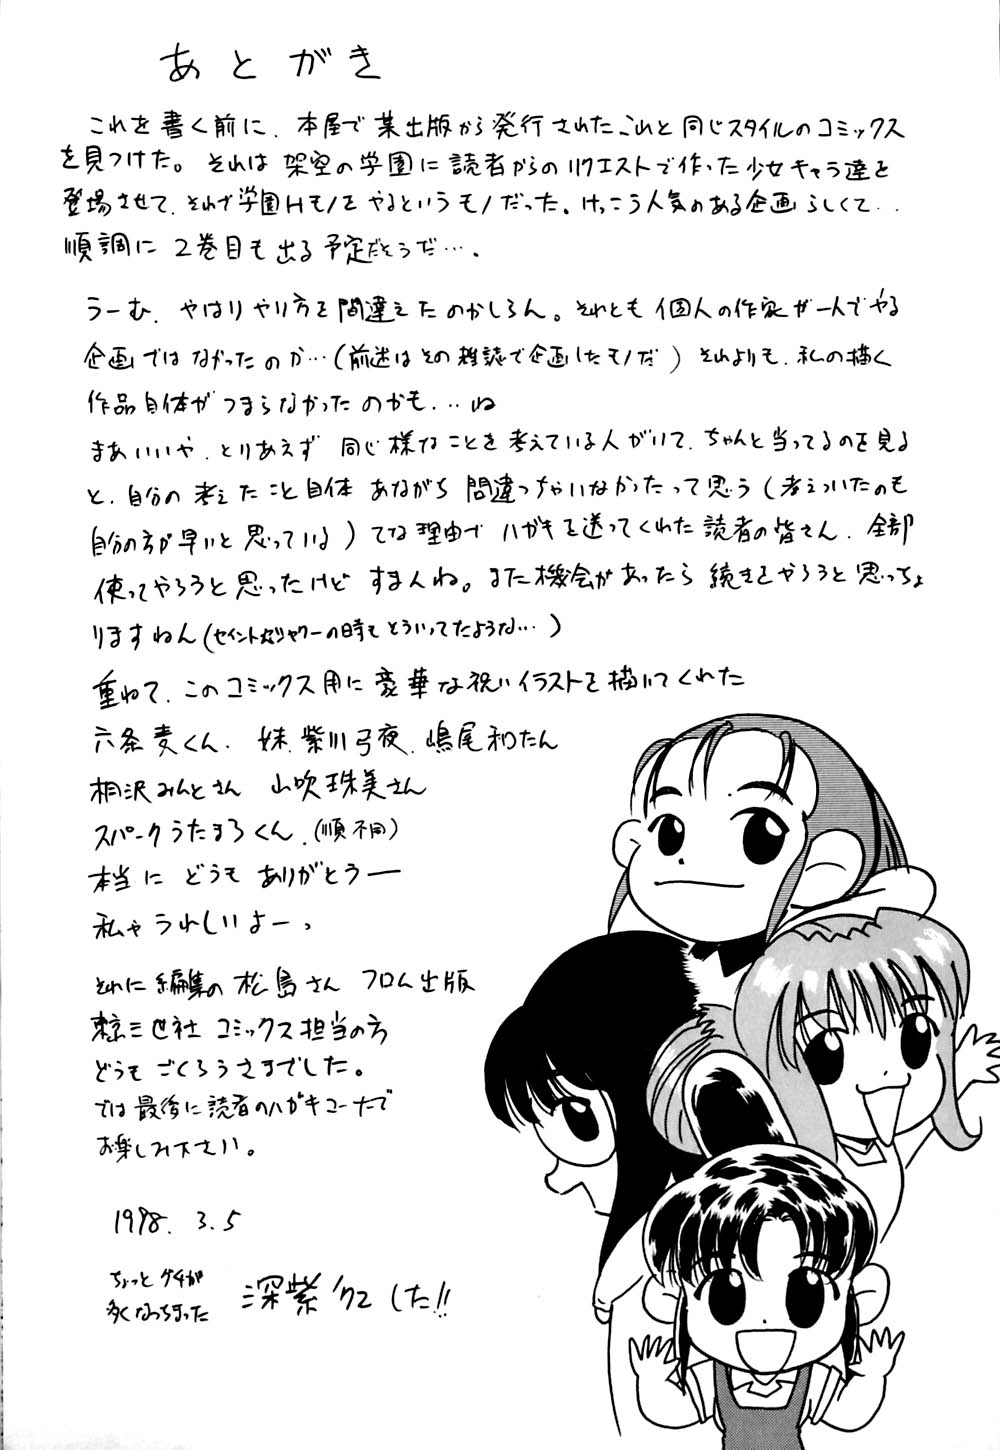 あとがき
これを書く前に、本屋で某出版から発行されたこれと同じスタイルのコミックス
を見つけた。それは架空の学園に読者からのリクエストで作った少女キャラ達を
登場させて、それで学園Hモノをやるというモノだった。けっこう人気のある企画らしくて‥
順調に2巻目も出る予定だそうだ…。
うーむ、やはりやり方を間違えたのかしらん。それとも個人の作家が一人でやる
企画ではなかったのか…(前述はその雑誌で企画したモノだ)それよりも、私の描く
作品自体がつまらなかったのかも…ね
まあいいや、とりあえず同じ様なことを考えている人がいて、ちゃんと当ってるのを見る
と、自分の考えたこと自体あながち間違っちゃいなかったって思う(考えついたのも
自分の方が早いと思っている)てな理由でハガキを送ってくれた読者の皆さん、全部
使ってやろうと思ったけどすまんね。また機会があったら続きをやろうと思っちょ
りますねん(セイント
の時もそういってたような…)
重ねて、このコミックス用に豪華な祝いイラストを描いてくれた
六条麦くん、妹、紫川弓夜、嶋尾和たん
相沢みんとさん 山吹珠美さん
スパークうたまろくん、(順不同)
本当にどうもありがとうー
私ゃうれしいよーっ
それに編集の松島さん フロム出版
東京三世社 コミックス担当の方
どうもごくろうさまでした。
では最後に読者のハガキコーナーで
お楽しみ下さい。
1998. 3.5
ちょっとグチが
多くなっちまった
深紫 でした!!